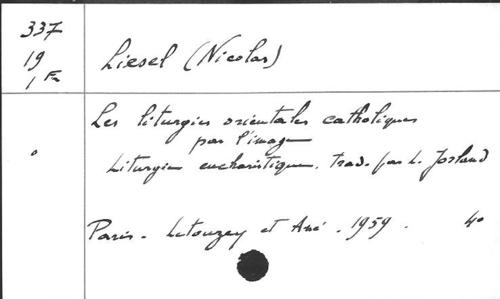 337
19
1 Fa
Liesel (Nicolas)
Les liturgies orientales catholiques
par l'image
Liturgie eucharistique. Trad. par L. Jorland
Paris - Letouzey et Ané - 1959. 4°